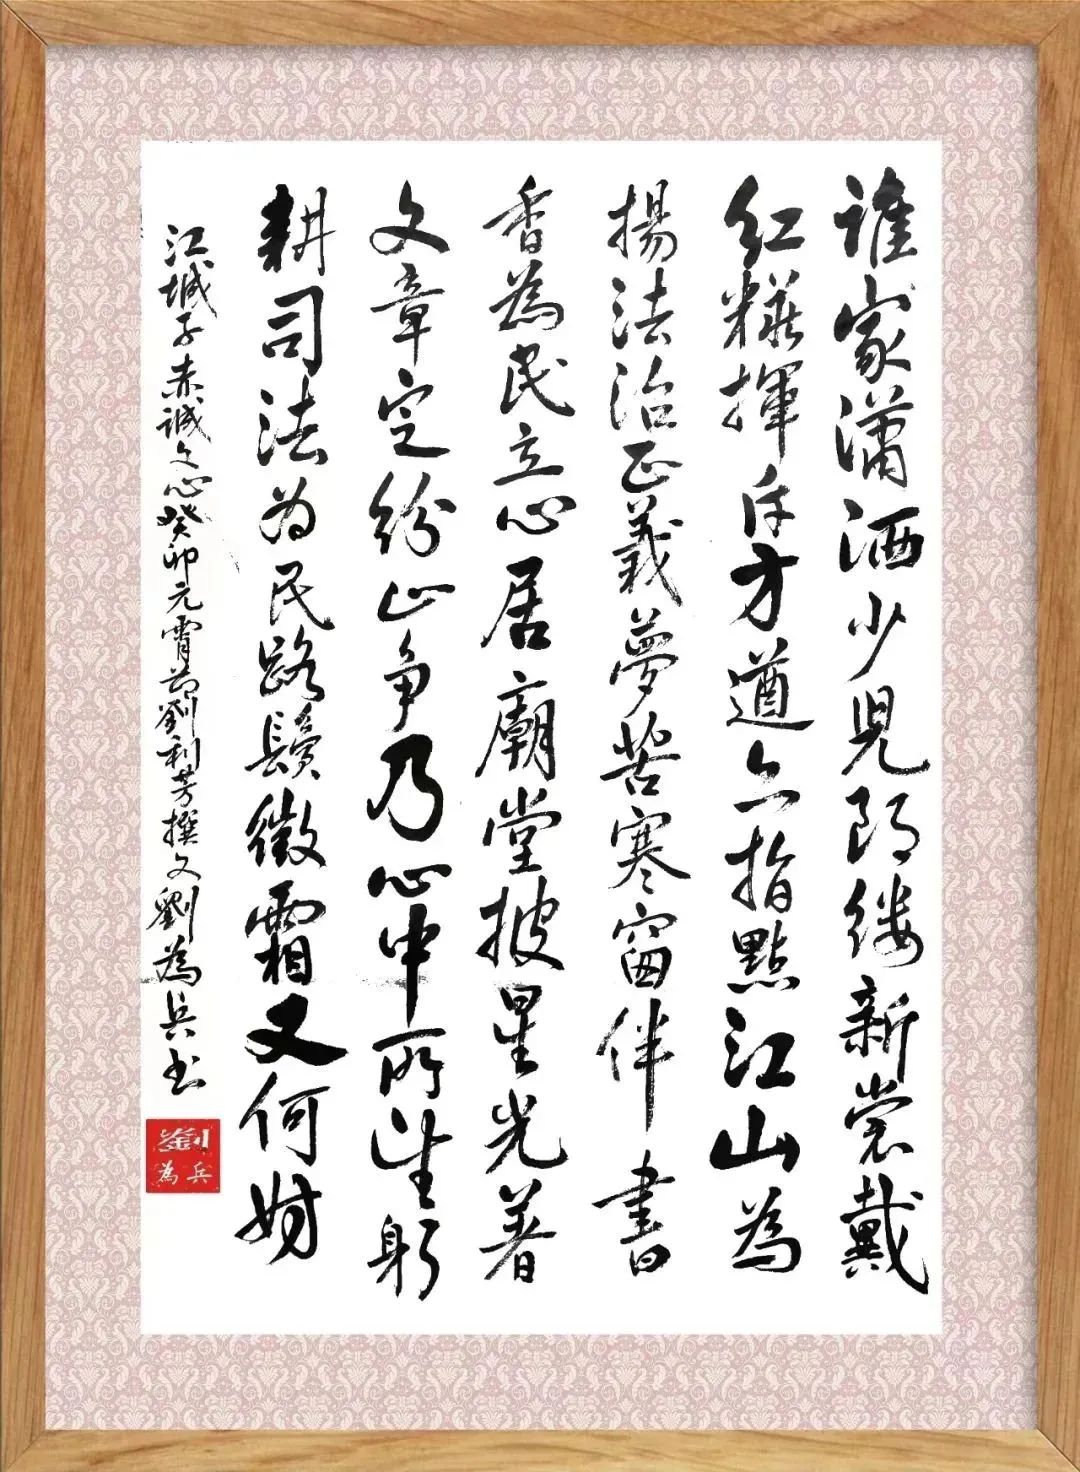 誰家瀟洒少兒郎缕新裳戴
红糚揮斥方遒亦指點江山為
揚法治正義夢苦寒窗伴書
香為民立心居廟堂披星光著
文章定纷止争乃心中所望躬
耕司法为民路鬓微霜又何妨
江城子赤诚文心癸卯元宵節劉利芳撰文劉為兵书
劉為兵